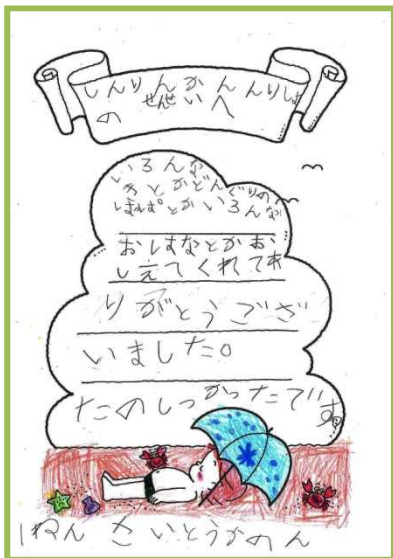 しんりんかんんりしょ
のせんせいへ
いろんな
きとかどんぐりの
ぼうしとかいろんな
おはなとかお
しえてくれてあ
りがとうござ
いました。
たのしっかったです
1ねんさいとうかのん